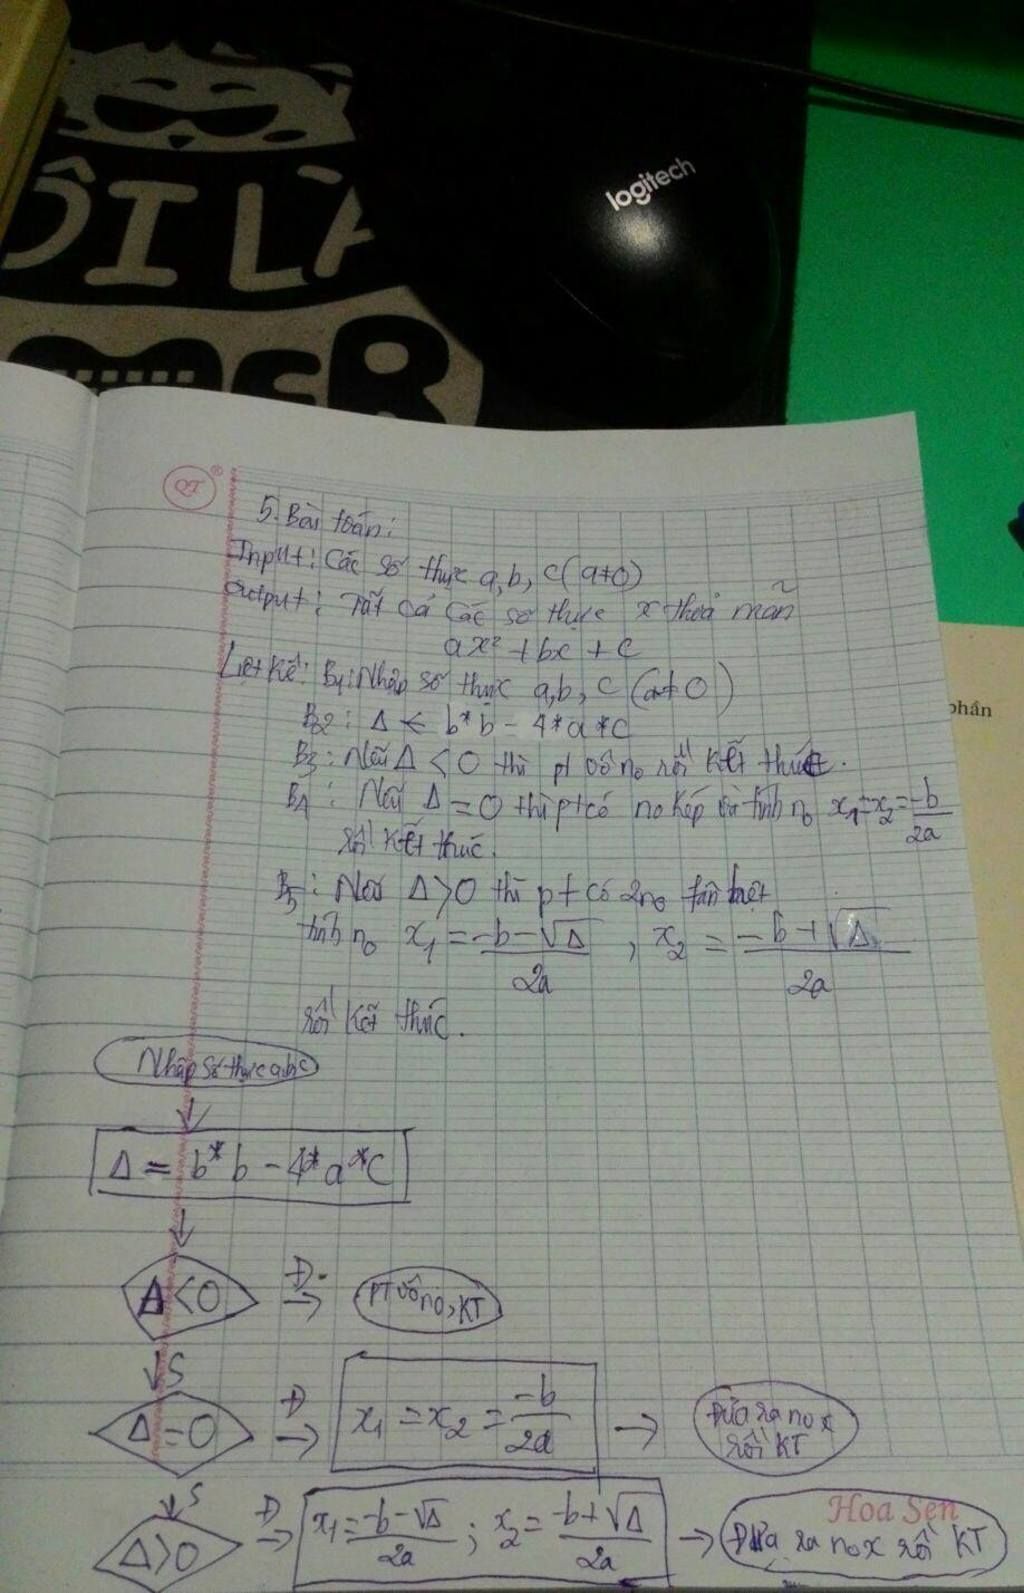 ÔI LÀ
logitech
QT
5. Bài toán:
Input: Các số thực a, b, c (a≠0)
Output: Tất cả các số thực x thoả mãn
ax² + bx + c
Liệt kê: B1: Nhập số thực a, b, c (a≠0)
B2: Δ ← b*b - 4*a*c
phần
B3: Nếu Δ < 0 thì pt vô no rồi kết thúc.
B4: Nếu Δ = 0 thì pt có no kép và tính no x₁=x₂= -b/2a
rồi kết thúc.
B5: Nếu Δ > 0 thì pt có 2no fân biệt
tính no x₁ = -b-√Δ/2a , x₂ = -b+√Δ/2a
rồi kết thúc.
Nhập số thực a,b,c
Δ = b*b - 4*a*c
Δ < 0 Đ pt vô no, KT
S
Δ = 0 Đ x₁ = x₂ = -b/2a Đưa ra no x
rồi KT
S
Hoa Sen
Δ > 0 Đ x₁ = -b-√Δ/2a ; x₂ = -b+√Δ/2a Đưa ra no x rồi KT